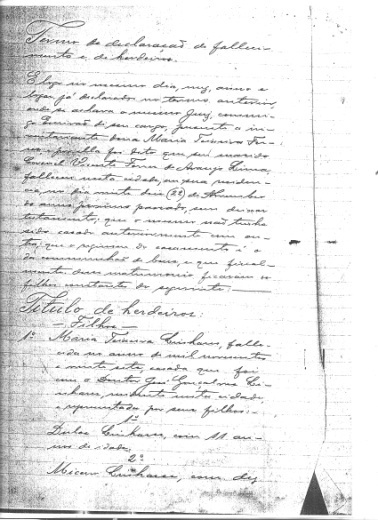 Termo de declaração de falleci-
mento e de herdeiros.
E logo no mesmo dia, mez, anno e
logar já declarados no termo anterior,
onde se achava o mesmo Juiz, commi-
go Escrivão de seu cargo, presente a in-
ventariante dona Maria Teixeira Fer-
por ella foi dito que seu marido
Coronel Vicente Ferrer de Araujo Lima,
falleceu nesta cidade, em sua residen-
cia, no dia vinte dois (22) de Novembro
do anno proximo passado, sem deixar
testamento, que o mesmo não tinha
sido casado anteriormente com ou-
tra, que o regimen do casamento é o
da communhão de bens, e que final-
mente desse matrimonio ficaram os
filhos constantes do seguinte:
Titulo de herdeiros:
— Filhos —
1º Maria Teixeira Linhares, falle-
cida no anno de mil novecentos
e vinte sete, casada que foi
com o Doutor José Gonçalves Li-
nhares, residente nesta cidade,
representada por seus filhos:
1º
Dulce Linhares, com 11 an-
nos de idade,
2º
Linhares, com dez